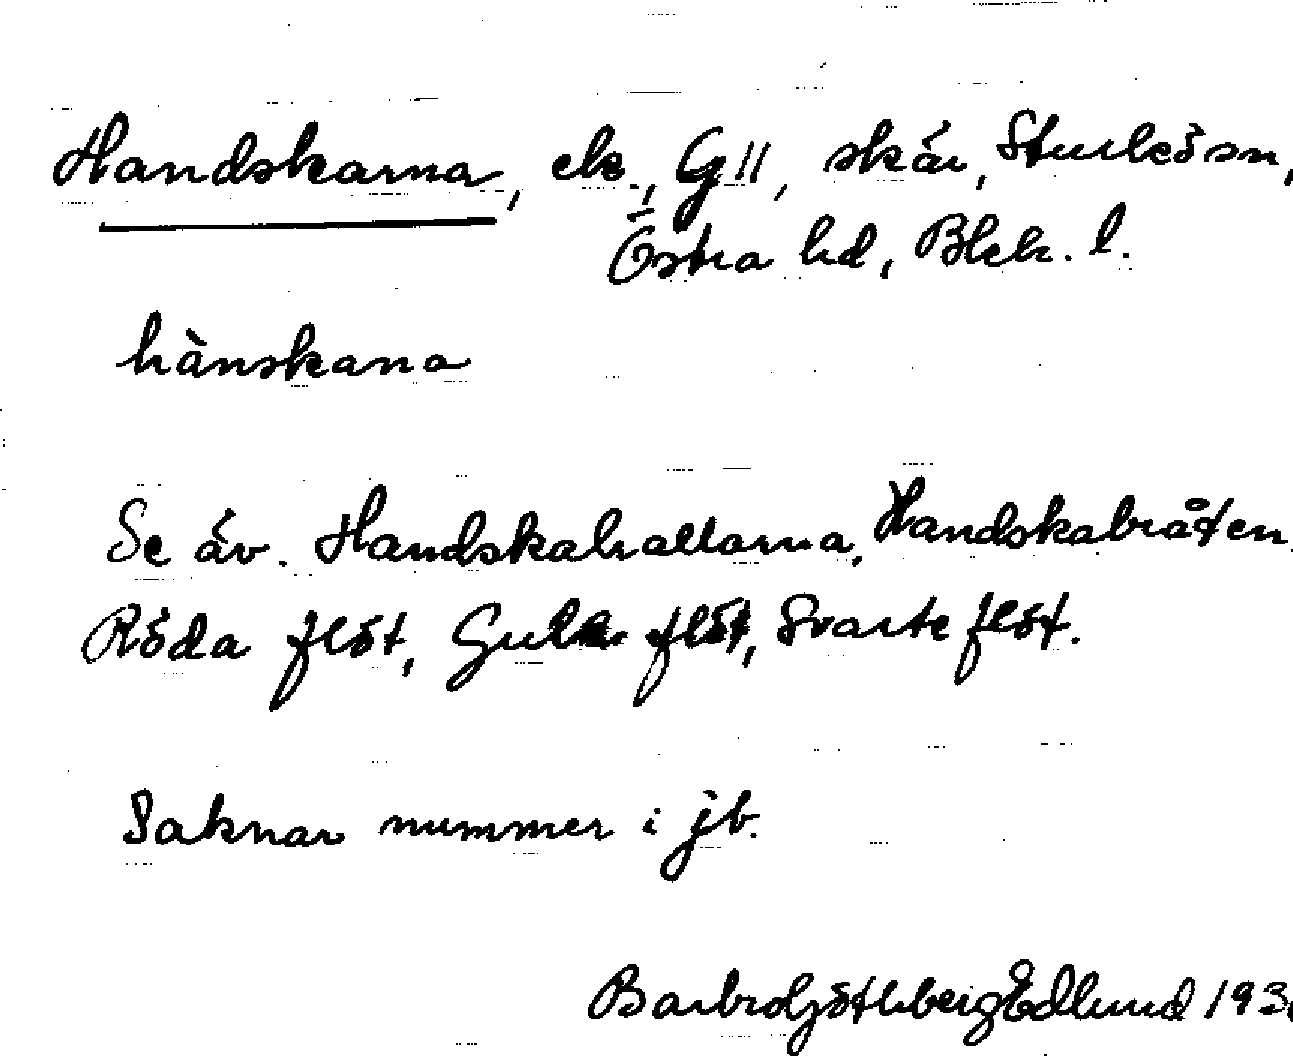 Handskarna, ek., G 11, skär, Sturkö sn,
Östra hd, Blek. l.
hànskana
Se äv. Handskahallarna, Handskabråten
Röda flöt, Gula flöt, Svarte flöt.
Saknar nummer i jb.
Barbro Götlberg Edlund 193